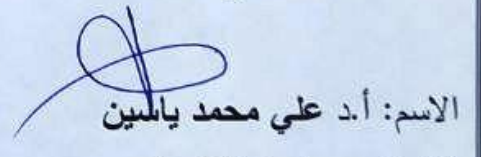 الاسم: أ.د علي محمد ياسين